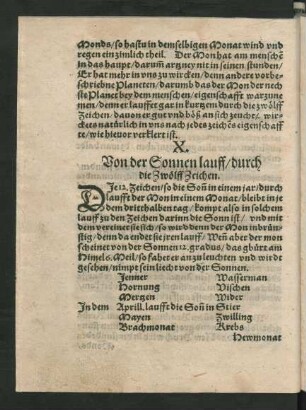 Monds/so hastu in demselbigen Monat wind vnd
regen ein zimlich theil. Der Mon hat am menschē
in das haupt/darum̄ artzney nit in seinen stunden/
Er hat mehr in vns zu wircken/denn andere vorbe-
schriebne Planeten/darumb das der Mon der nech
ste Planet bey dem menschen/eigenschafft war zune
men/denn er lauffet gar in kurtzem durch die zwölff
Zeichen/dauon er gut vnd böß an sich zeucht/wir-
cket es natürlich in vns nach jedes zeichēs eigenschaff
te/wie hieuor verklert ist.
X.
Von der Sonnen lauff/durch
die Zwölff Zeichen.
DIe 12. Zeichen/so die Soñ in einem jar/durch
laufft der Mon in einem Monat/bleibt in je
dem dritthalben tag/kompt also in solchem
lauff zu den Zeichen darinn die Sonn ist/vnd mit
dem vereinet sie sich/so wird denn der Mon inbrün-
stig/denn da endet sie jren lauff/Weñ aber der mon
scheinet von der Sonnen 12. gradus/das ghört am
Himel 6. Meil/so fahet er an zu leuchten vnd wirdt
gesehen/nimpt sein liech von der Sonnen.
Jenner Wasserman
Hornung Vischen
Mertzen Wider
In dem Aprill. laufft die Soñ in Stier
Mayen Zwilling
Brachmonat Krebs
Hewmonat